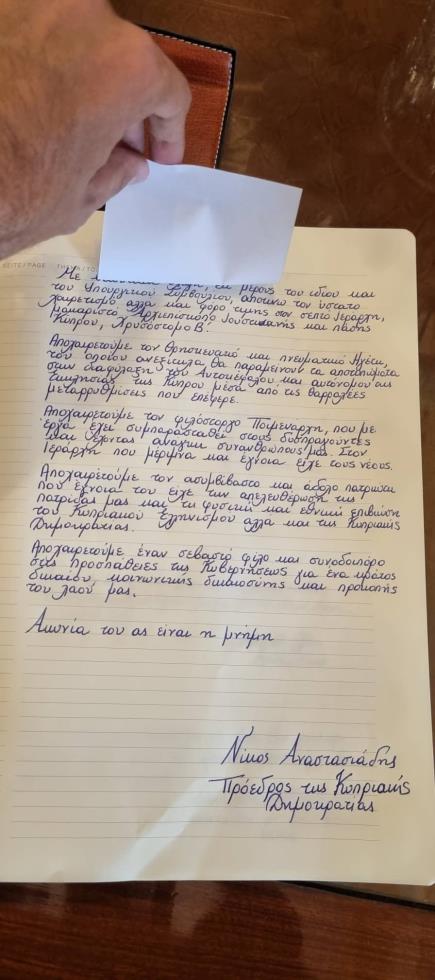 SEITE/PAGE
Με εκ μέρους του ιδίου και
του Υπουργικού Συμβουλίου, αποτίνω τον ύστατο
χαιρετισμό αλλά και φόρο τιμής στον σεπτό Ιεράρχη,
Μακαριστό Αρχιεπίσκοπο Ιουστινιανής και πάσης
Κύπρου, Χρυσόστομο Β'.
Αποχαιρετούμε τον θρησκευτικό και πνευματικό Ηγέτη,
του οποίου ανεξίτηλα θα παραμείνουν τα αποτυπώματα
στην διαφύλαξη του Αυτοκέφαλου και αυτόνομου της
Εκκλησίας της Κύπρου μέσα από τις θαρραλέες
μεταρρυθμίσεις που επέφερε.
Αποχαιρετούμε τον φιλόστοργο Ποιμενάρχη, που με
έργα έχει συμπαρασταθεί στους δυσπραγούντες
και έχοντας ανάγκη συνανθρώπους μας. Στον
Ιεράρχη που μέριμνα και έγνοια είχε τους νέους.
Αποχαιρετούμε τον ασυμβίβαστο και άδολο πατριώτη
που έγνοια του είχε την απελευθέρωση της
πατρίδας μας και τη φυσική και εθνική επιβίωση
του Κυπριακού Ελληνισμού αλλά και της Κυπριακής
Δημοκρατίας.
Αποχαιρετούμε έναν σεβαστό φίλο και συνοδοιπόρο
στις προσπάθειες της Κυβερνήσεως για ένα κράτος
δικαίου, κοινωνικής δικαιοσύνης και προκοπής
του λαού μας.
Αιωνία του ας είναι η μνήμη
Νίκος Αναστασιάδης
Πρόεδρος της Κυπριακής
Δημοκρατίας